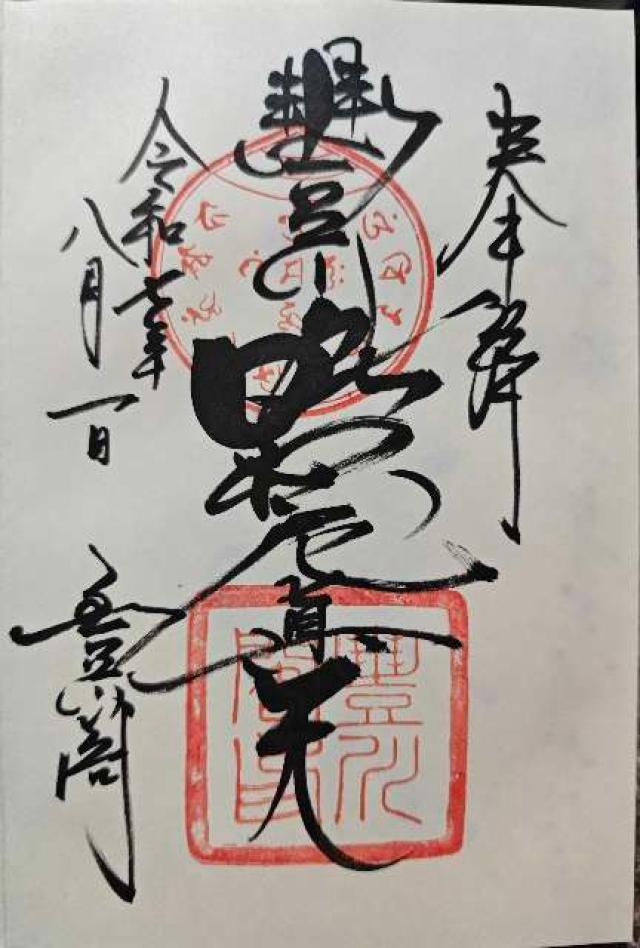 奉拝
豐川吒枳尼眞天
令和七年
八月一日
豐川閣
豐川
閣印